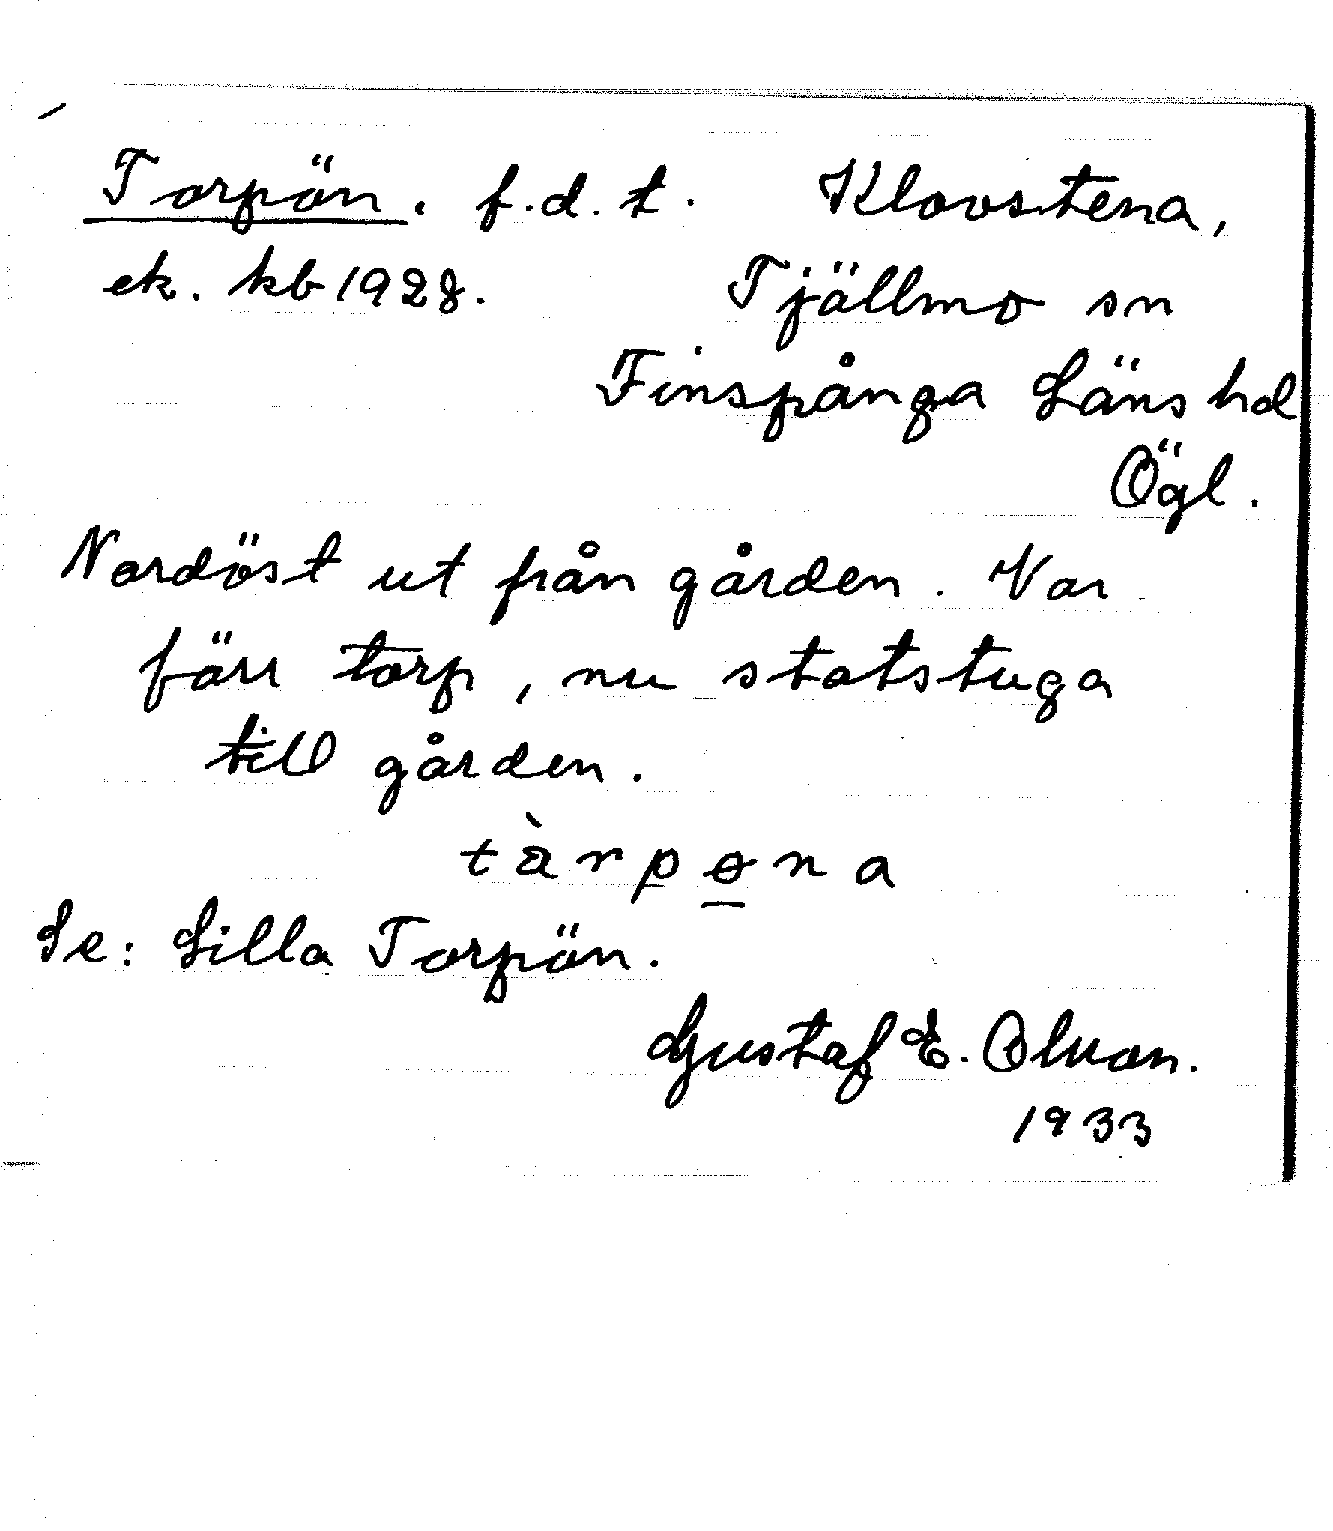 Torpön. f.d.t. Klovstena,
ek. kb 1928. Tjällmo sn
Finspånga Läns hd
Ögl.
Nordöst ut från gården. Var
förr torp, nu statstuga
till gården.
tàrpøna
Se: Lilla Torpön.
Gustaf E.
1933